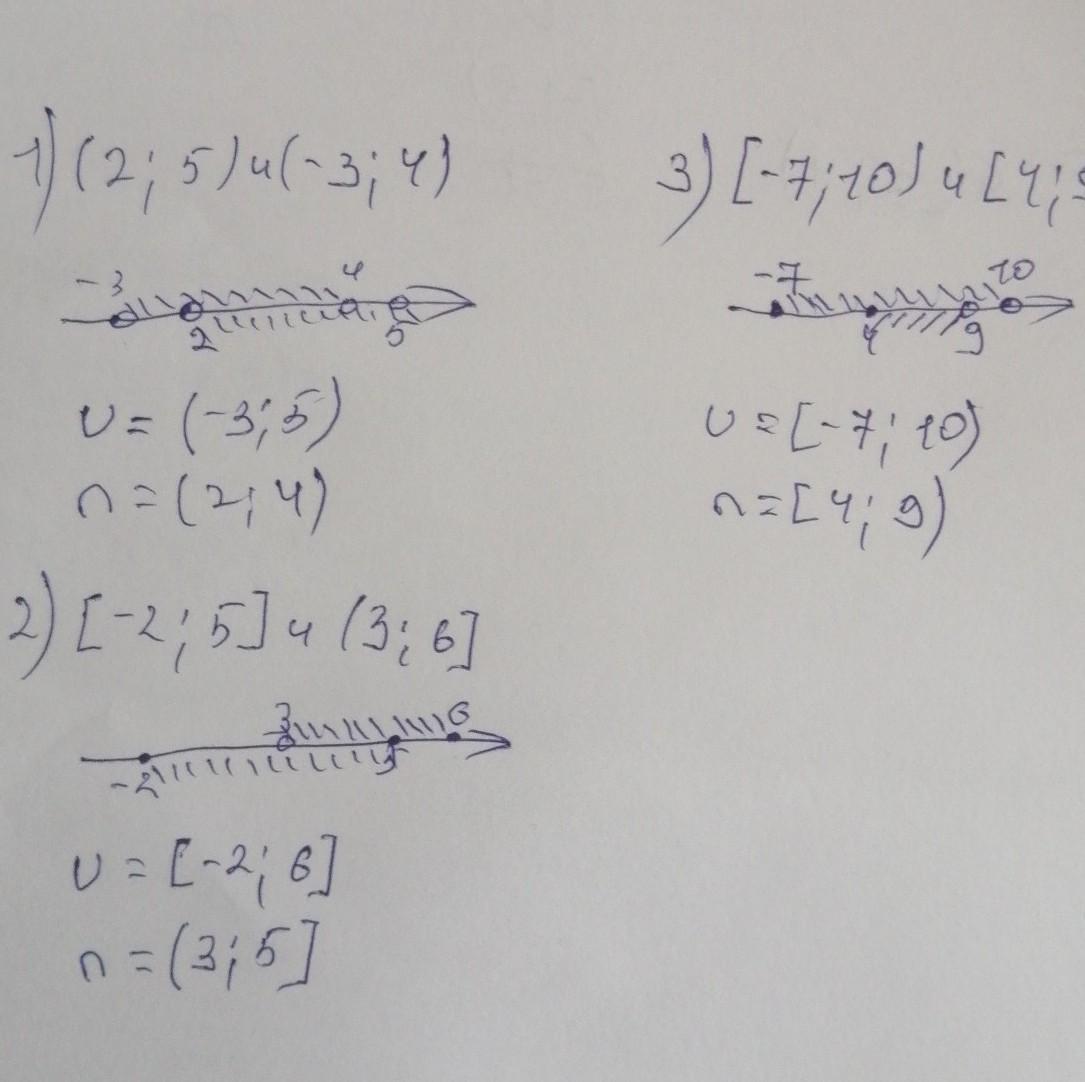 1) (2; 5) и (-3; 4)
-3 4
2 5
∪ = (-3; 5)
∩ = (2; 4)
2) [-2; 5] и (3; 6]
3 6
-2 5
∪ = [-2; 6]
∩ = (3; 5]
3) [-7; 10) и [4;
-7 10
4 9
∪ = [-7; 10)
∩ = [4; 9)